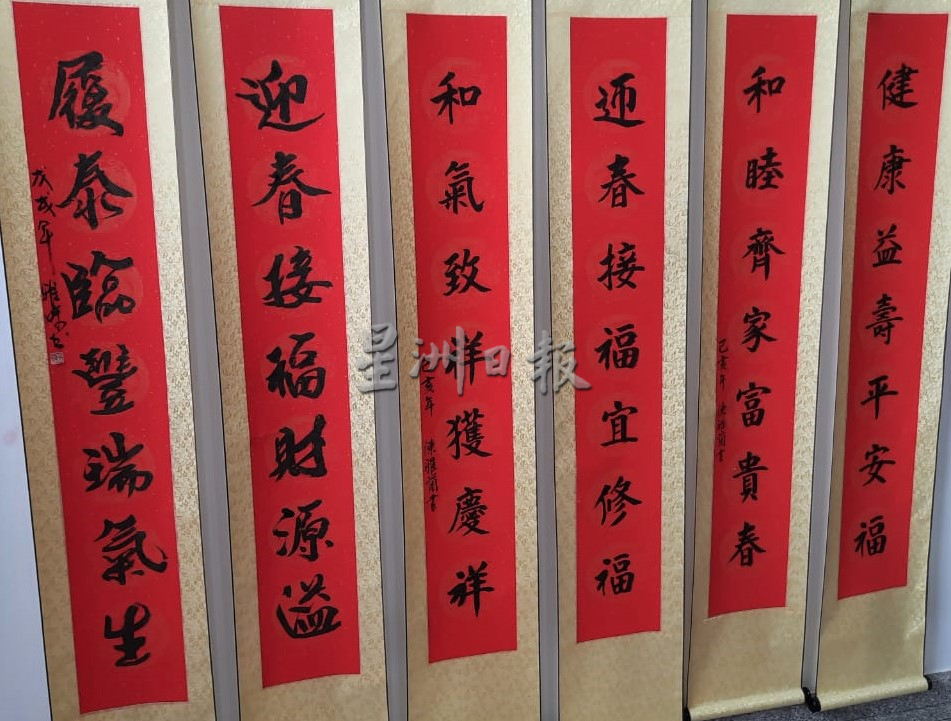 健康益壽平安福
和睦齊家富貴春
己亥年
迎春接福宜修福
和氣致祥獲慶祥
己亥年
迎春接福財源溢
履泰臨豐瑞氣生
戊戌年
星洲日報